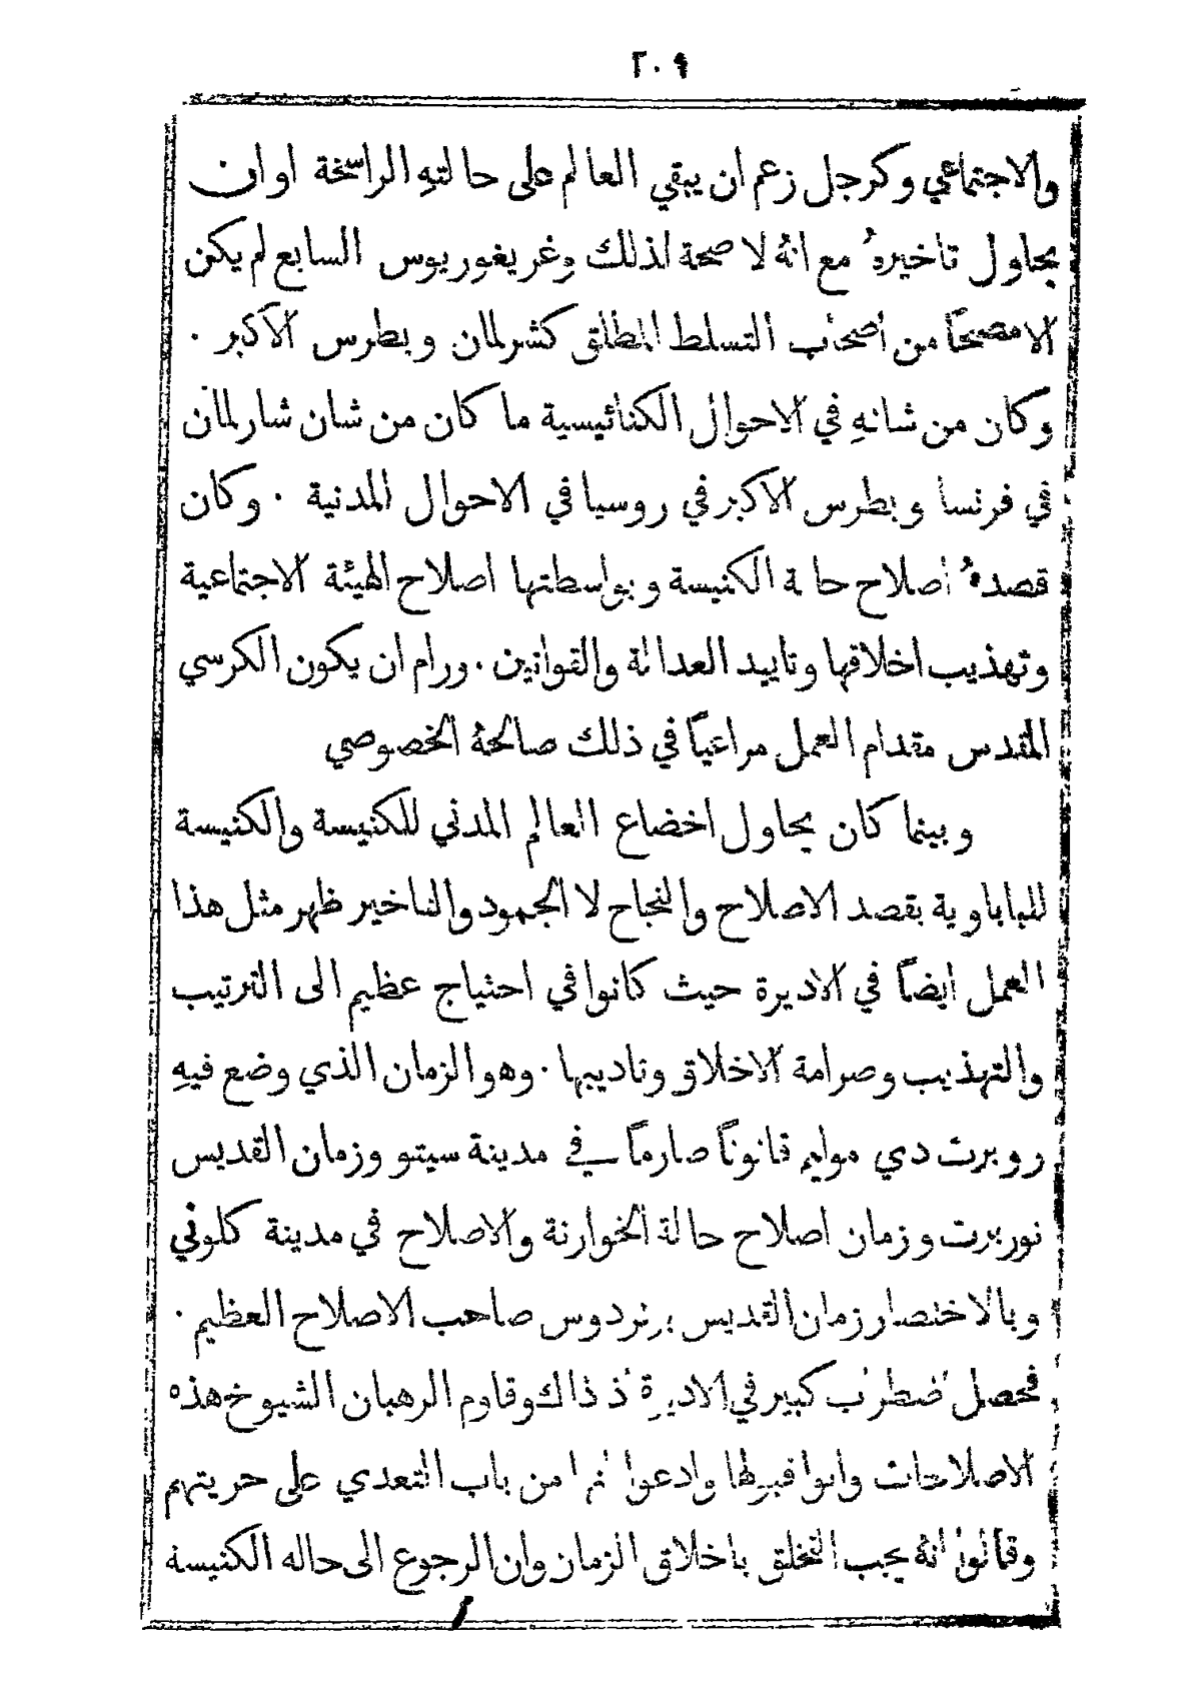 ٢٠٩
والاجتماعي وكرجل زعم ان يبقي العالم على حالتهِ الراسخة او ان
يحاول تاخيرهُ مع انهُ لا صحة لذلك وغريغوريوس السابع لم يكن
الا مصححًا من اصحاب التسلط المطلق كشرلمان وبطرس الاكبر .
وكان من شانهِ في الاحوال الكنائيسية ما كان من شان شارلمان
في فرنسا وبطرس الاكبر في روسيا في الاحوال المدنية . وكان
قصدهُ اصلاح حالة الكنيسة وبواسطتها اصلاح الهيئة الاجتماعية
وتهذيب اخلاقها وتاييد العدالة والقوانين . ورام ان يكون الكرسي
المقدس مقدام العمل مراعيًا في ذلك صالحهُ الخصوصي
وبينما كان يحاول اخضاع العالم المدني للكنيسة والكنيسة
للباباوية بقصد الاصلاح والنجاح لا الجمود والتاخير ظهر مثل هذا
العمل ايضًا في الاديرة حيث كانوا في احتياج عظيم الى الترتيب
والتهذيب وصرامة الاخلاق وتاديبها . وهو الزمان الذي وضع فيهِ
روبرت دي موليم قانونًا صارمًا في مدينة سيتو وزمان القديس
نوربرت وزمان اصلاح حالة الخوارنة والاصلاح في مدينة كلوني
وبالاختصار زمان القديس برنردوس صاحب الاصلاح العظيم .
فحصل اضطراب كبير في الاديرة اذ ذاك وقاوم الرهبان الشيوخ هذه
الاصلاحات وابوا قبولها وادعوا انها من باب التعدي على حريتهم
وقالوا انهُ يجب التخلق باخلاق الزمان وان الرجوع الى حاله الكنيسة